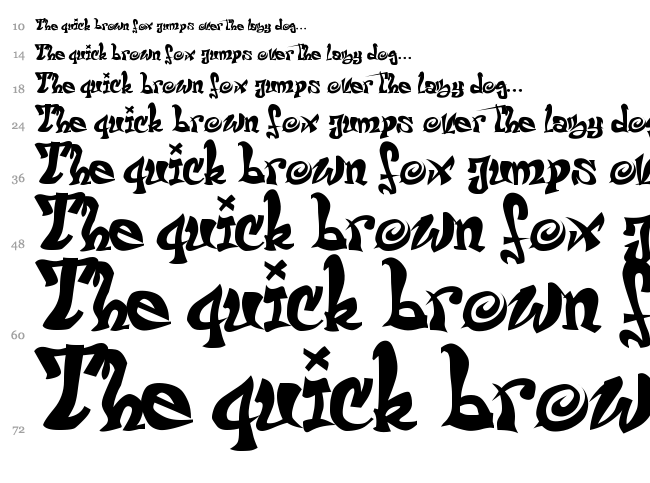 10 The quick brown fox jumps over the lazy dog...
14 The quick brown fox jumps over the lazy dog...
18 The quick brown fox jumps over the lazy dog...
24 The quick brown fox jumps over the lazy dog
36 The quick brown fox jumps ov
48 The quick brown fox j
60 The quick brown f
72 The quick brow